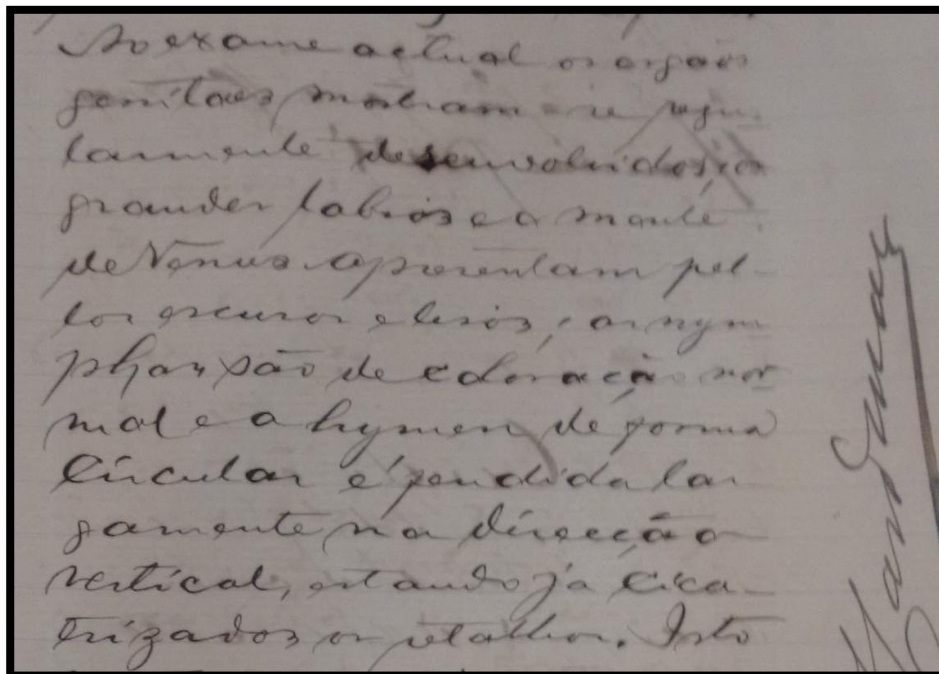 Ao exame actual os orgãos
genitaes mostram-se regu-
larmente desenvolvidos; os
grandes labios e o monte
de Venus apresentam pel-
los escuros e lisos; as nym
phas são de coloração nor
mal e a hymen de forma
circular é fendida lar-
gamente na direcção
vertical, estando já cica-
trizados os retalhos. Isto